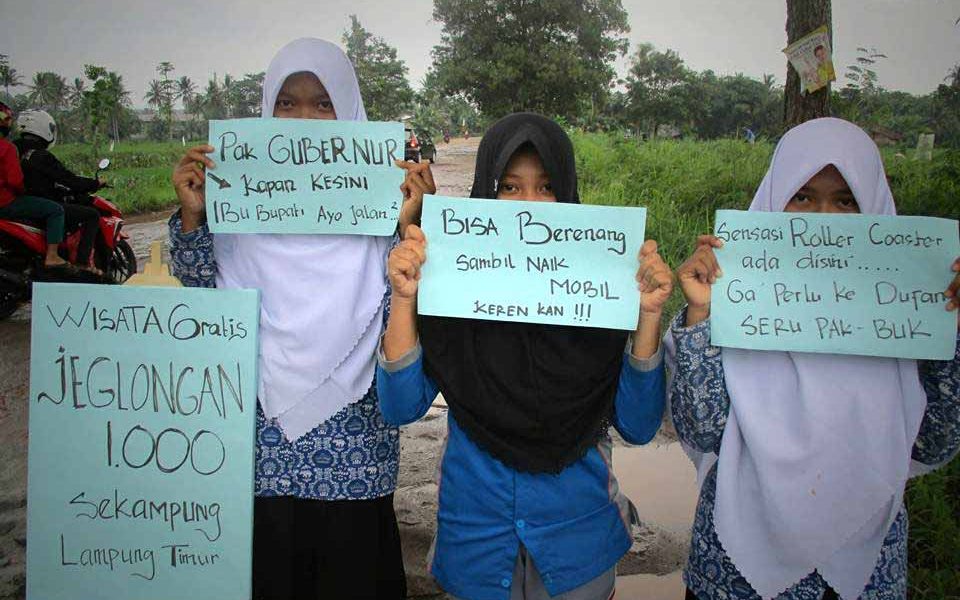 Pak GUBERNUR
Kapan KESINI
IBU Bupati Ayo Jalan²
BISA Berenang
SAMBIL NAIK
MOBIL
KEREN KAN !!!
Sensasi Roller Coaster
ada disini.....
Ga' Perlu ke Dufan
SERU PAK-BUK
WISATA Gratis
JEGLONGAN
1.000
Sekampung
Lampung Timur